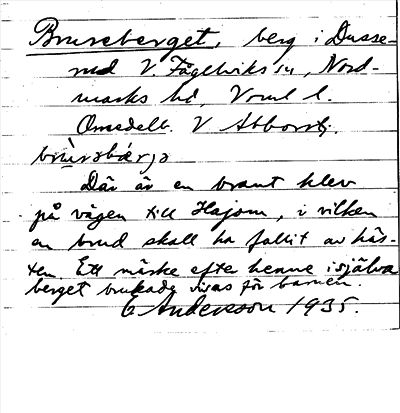 Brureberget, berg i Dusse-
rud V. Fågelviks sn, Nord-
marks hd, Vrml l.
Omedelb. V Abborrtj.
Där är en brant klev
på vägen till Hajom, i vilken
en brud skall ha fallit av häs-
ten. Ett märke efter henne i själva
berget brukade visas för barnen.
E Andersson 1935.